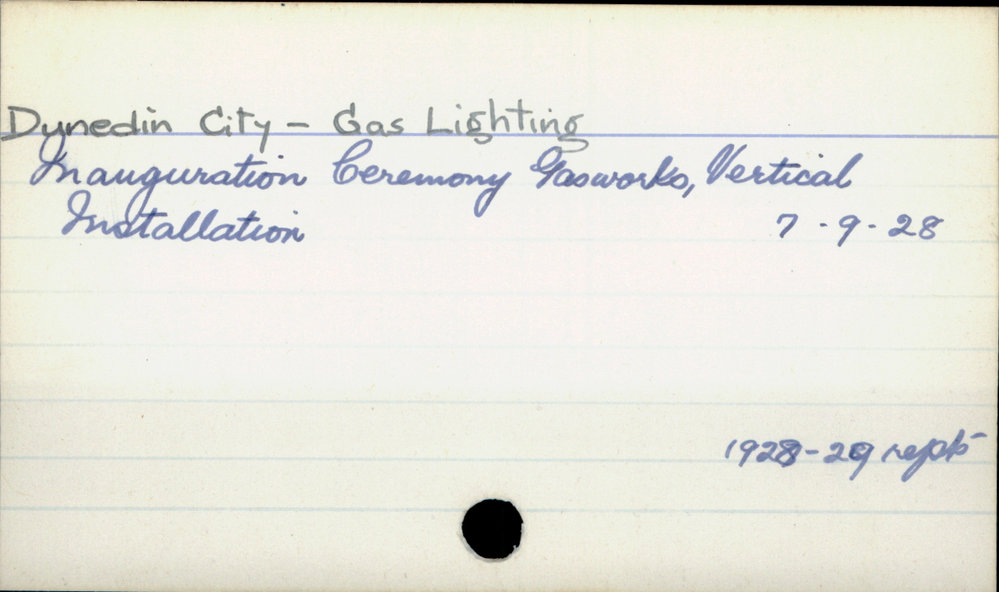 Dunedin City - Gas Lighting
Inauguration Ceremony Gasworks, Vertical
Installation 7.9.28
1928-29 rept